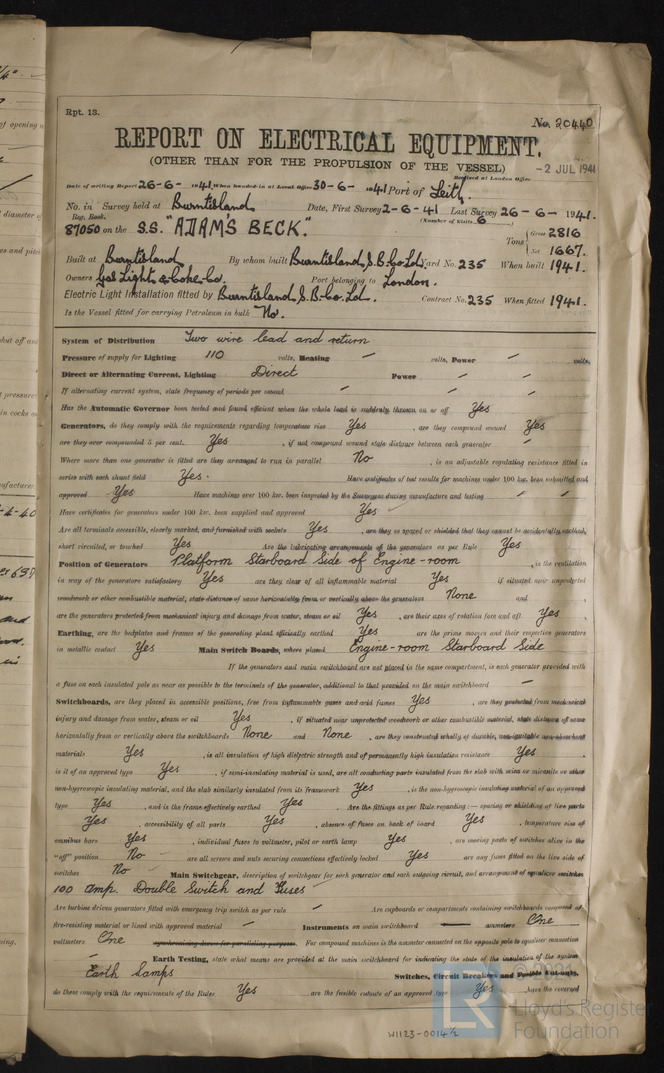 Rpt. 13.
No. 20440
REPORT ON ELECTRICAL EQUIPMENT.
(OTHER THAN FOR THE PROPULSION OF THE VESSEL)
Received at London Office -2 JUL 1941
Date of writing Report 26-6-1941. When handed in at Local Office 30-6-1941 Port of Leith.
No. in Survey held at Burntisland Date, First Survey 2-6-41 Last Survey 26-6-1941.
Reg. Book. (Number of Visits 6
87050 on the S.S. "ADAM'S BECK." Tons Gross 2816
Net 1667.
Built at Burntisland By whom built Burntisland S.B. Co Ltd Yard No. 235 When built 1941.
Owners Gas Light & Coke Co. Port belonging to London.
Electric Light Installation fitted by Burntisland S.B. Co Ld. Contract No. 235 When fitted 1941.
Is the Vessel fitted for carrying Petroleum in bulk No.
System of Distribution Two wire lead and return
Pressure of supply for Lighting 110 volts, Heating — volts, Power — volts.
Direct or Alternating Current, Lighting Direct Power —
If alternating current system, state frequency of periods per second —
Has the Automatic Governor been tested and found efficient when the whole load is suddenly thrown on or off Yes
Generators, do they comply with the requirements regarding temperature rise Yes, are they compound wound Yes
are they over compounded 5 per cent. Yes, if not compound wound state distance between each generator —
Where more than one generator is fitted are they arranged to run in parallel No, is an adjustable regulating resistance fitted in
series with each shunt field Yes. Have certificates of test results for machines under 100 kw. been submitted and
approved Yes Have machines over 100 kw. been inspected by the Surveyors during manufacture and testing —
Have certificates for generators under 100 kw. been supplied and approved Yes
Are all terminals accessible, clearly marked, and furnished with sockets Yes, are they so spaced or shielded that they cannot be accidentally earthed,
short circuited, or touched Yes Are the lubricating arrangements of the generators as per Rule Yes
Position of Generators Platform Starboard Side of Engine-room, is the ventilation
in way of the generators satisfactory Yes are they clear of all inflammable material Yes if situated near unprotected
woodwork or other combustible material, state distance of same horizontally from or vertically above the generators None and
are the generators protected from mechanical injury and damage from water, steam or oil Yes, are their axes of rotation fore and aft Yes
Earthing, are the bedplates and frames of the generating plant efficiently earthed Yes are the prime movers and their respective generators
in metallic contact Yes Main Switch Boards, where placed Engine-room Starboard Side
If the generators and main switchboard are not placed in the same compartment, is each generator provided with
a fuse on each insulated pole as near as possible to the terminals of the generator, additional to that provided on the main switchboard —
Switchboards, are they placed in accessible positions, free from inflammable gases and acid fumes Yes, are they protected from mechanical
injury and damage from water, steam or oil Yes, if situated near unprotected woodwork or other combustible material, state distance of same
horizontally from or vertically above the switchboards None and None, are they constructed wholly of durable, non-ignitable non-absorbent
materials Yes, is all insulation of high dielectric strength and of permanently high insulation resistance Yes
is it of an approved type Yes, if semi-insulating material is used, are all conducting parts insulated from the slab with mica or micanite or other
non-hygroscopic insulating material, and the slab similarly insulated from its framework Yes, is the non-hygroscopic insulating material of an approved
type Yes, and is the frame effectively earthed Yes. Are the fittings as per Rule regarding:— spacing or shielding of live parts
Yes, accessibility of all parts Yes, absence of fuses on back of board Yes, temperature rise of
omnibus bars Yes, individual fuses to voltmeter, pilot or earth lamp Yes, are moving parts of switches alive in the
"off" position No are all screws and nuts securing connections effectively locked Yes are any fuses fitted on the live side of
switches No Main Switchgear, description of switchgear for each generator and each outgoing circuit, and arrangement of equaliser switches
100 amp. Double Switch and Fuses
Are turbine driven generators fitted with emergency trip switch as per rule — Are cupboards or compartments containing switchboards composed of
fire-resisting material or lined with approved material — Instruments on main switchboard — ammeters One
voltmeters One synchronising device for paralleling purposes. For compound machines is the ammeter connected on the opposite pole to equaliser connection
— Earth Testing, state what means are provided at the main switchboard for indicating the state of the insulation of the system
Earth Lamps Switches, Circuit Breakers and Fusible Cut-outs,
do these comply with the requirements of the Rules Yes are the fusible cutouts of an approved type Yes, have the reversed
Lloyd's Register
Foundation
W1123-0014½